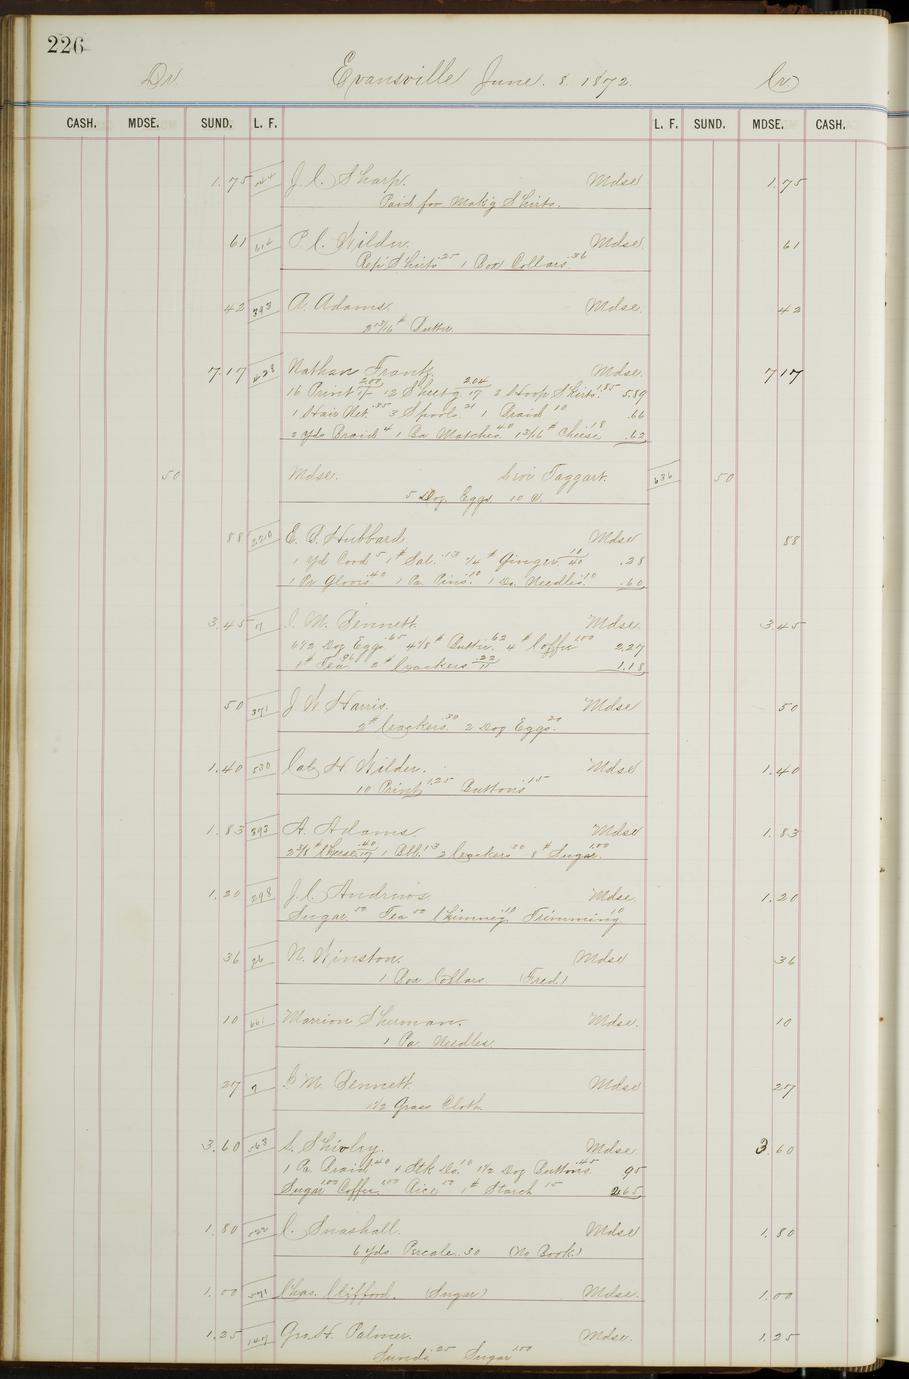 226
Dr Evansville June 8. 1872. Cr
CASH. MDSE. SUND. L. F. L. F. SUND. MDSE. CASH.
1.75 J. C. Sharp. Mdse 1.75
Paid for Mak'g Shirts.
61 P. C. Wilder. Mdse. 61
Rep' Shirts .25 1 Box Collars .36
42 393 A. Adams. Mdse. 42
2 13/16 # Butter
7.17 428 Nathan Frantz. Mdse. 7 17
16 Print 2.00/17 12 Sheet'g 2.04/17 2 Hoop Skirts 1.85 5.89
1 Hair Net .35 3 Spools 21 1 Braid 10 .66
2 yds Braid 4 1 Bx Matches 40 1 3/16 # Cheese .18 .62
50 Mdse. Levi Taggart. 636 50
5 Doz. Eggs 10 @
88 220 E. B. Hubbard. Mdse 88
1 yd Cord 5 1 # Sal. .13 1/4 # Ginger 10/40 .28
1 Pr Gloves .40 1 Pa Pins .10 1 Do. Needles .10 .60
3.45 9 J. M. Bennett. Mdse. 3.45
6 1/2 Doz Eggs .65 4 1/8 # Butter .62 4 # Coffee 1.00 2.27
1 # Tea 96 2 # Crackers .22/11 1.18
50 371 J. W. Harris. Mdse 50
2 # Crackers .30 2 Doz Eggs 20
1.40 530 Cab H Wilder. Mdse 1.40
10 Print 1.25 Buttons .15
1.83 393 A. Adams Mdse 1.83
2 3/8 # Cheese .40/17 1 Bbl. 13 2 Crackers 30 8 # Sugar 1.00
1.20 298 J. C. Andrews. Mdse. 1.20
Sugar 50 Tea 50 Chimney .10 Trimming .10
36 96 N. Winston. Mdse 36
1 Box Collars. (Fred)
10 661 Marrion Sherman. Mdse. 10
1 Pa Needles.
27 9 J. M. Bennett. Mdse 27
1 1/2 Grass Cloth
3.60 563 S. Shivley. Mdse. 3 60
1 Pc. Braid 40 1 Stk Do. 10 1 1/2 Doz Buttons .45 95
Sugar 1.00 Coffee 1.00 Rice 50 1 # Starch 15 2.65
1.80 C. Snashall. Mdse 1.80
6 yds Percale .30 (No Book)
1.00 571 Chas. Clifford. (Sugar) Mdse. 1.00
1.25 147 Geo. H. Palmer. Mdse. 1.25
Sunds .25 Sugar 1.00